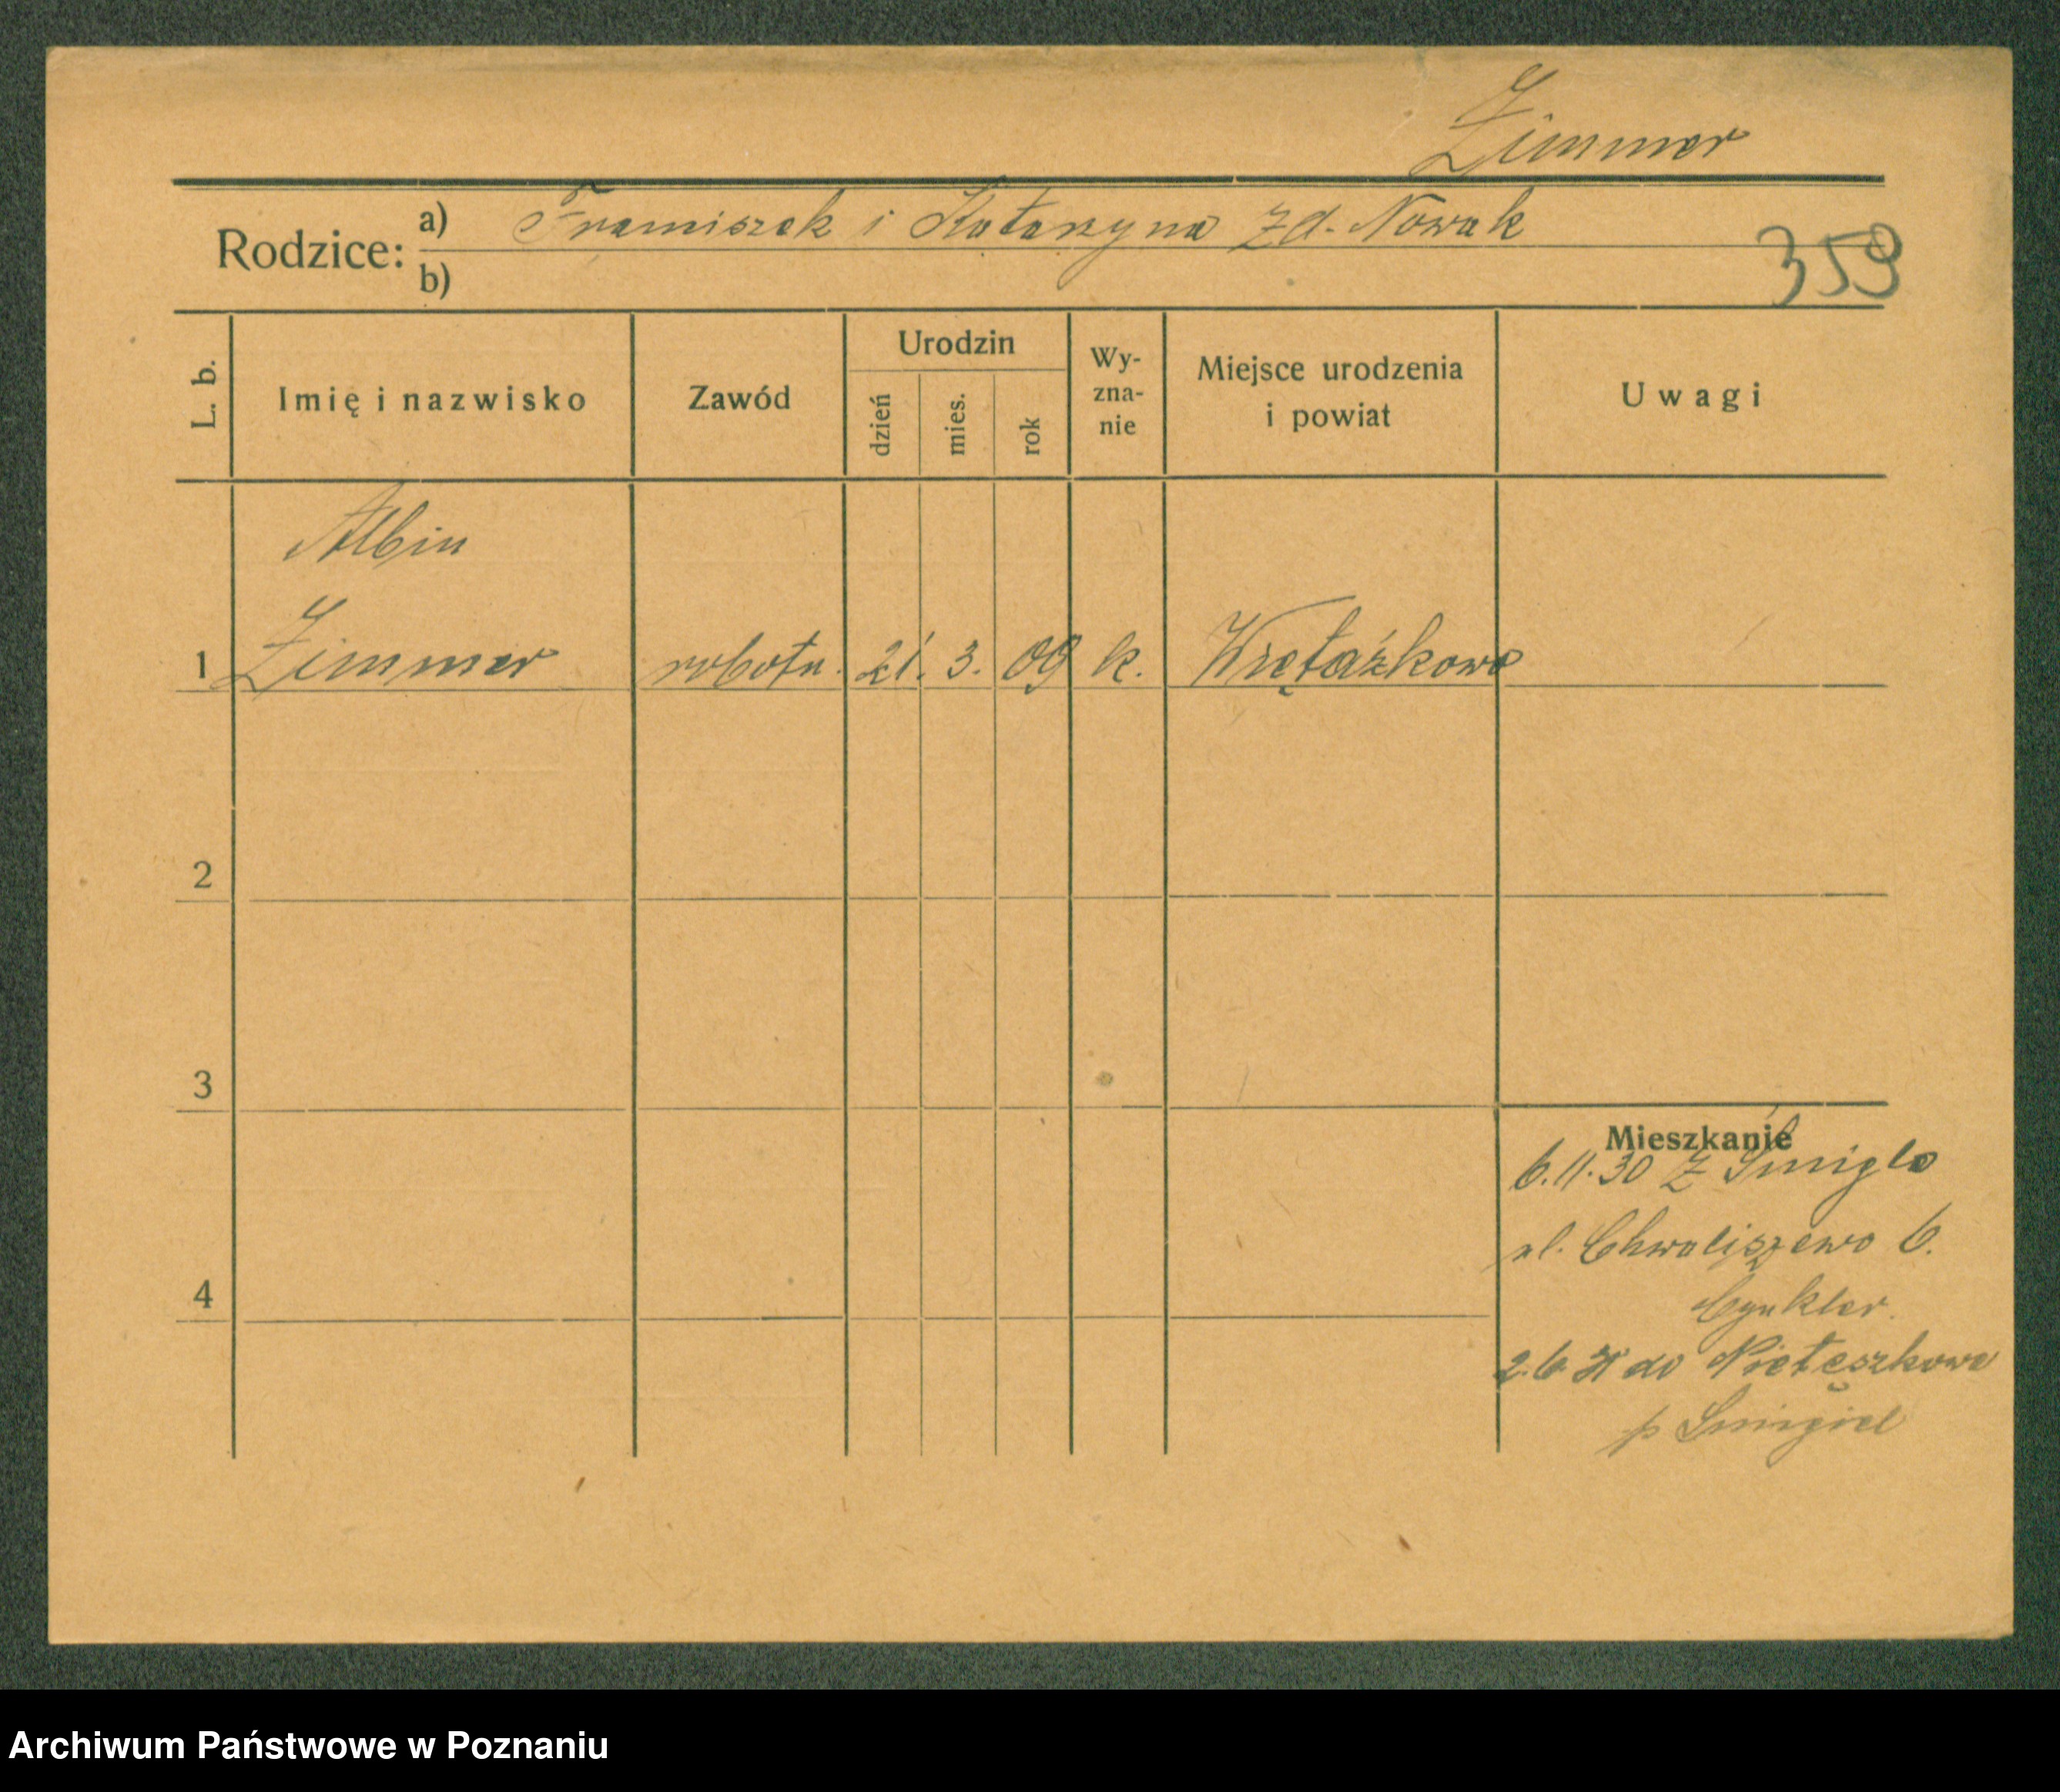 Zimmer
Rodzice: a) Franciszek i Katarzyna zd. Nowak
b)
359
L. b. Imię i nazwisko Zawód Urodzin dzień mies. rok Wy-zna-nie Miejsce urodzenia i powiat Uwagi
Albin
1 Zimmer robotn. 21. 3. 09 k. Wietążkowo
2
3
Mieszkanie
6.11.30 z Śmigla
ul. Chwaliszewo 6.
4
2.6. do
p Śmigiel
Archiwum Państwowe w Poznaniu